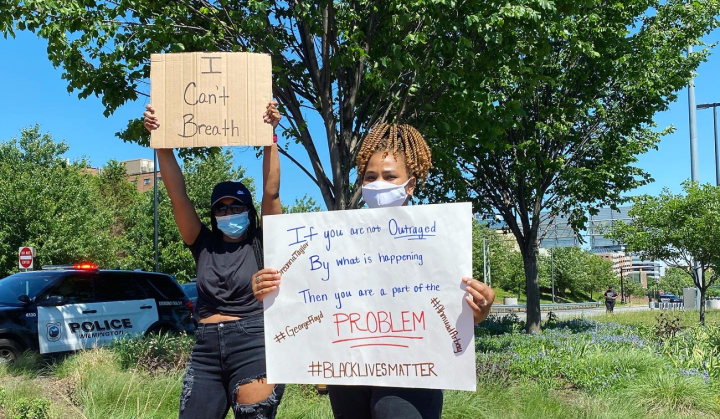 I
Can't
Breath
If you are not Outraged
By what is happening
Then you are a part of the
PROBLEM
#BLACKLIVESMATTER
#GeorgeFloyd
#BreonnaTaylor
POLICE
WILMINGTON